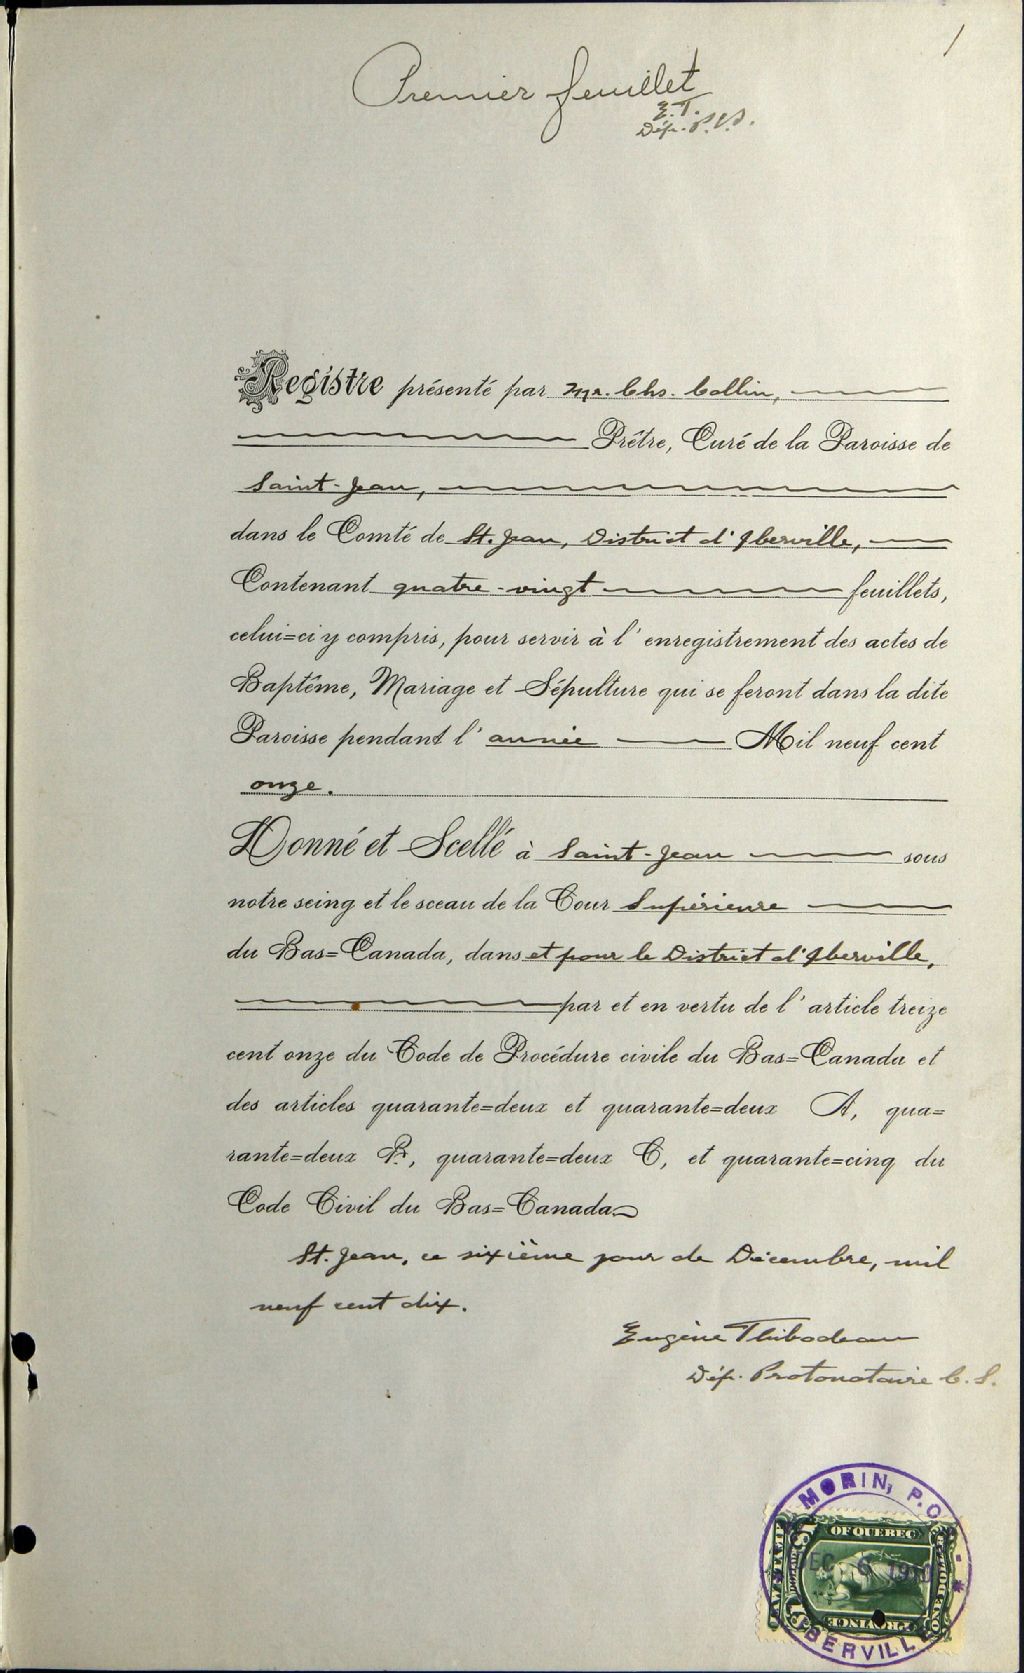 1
Premier feuillet
E.T.
Dép. P.C.S.
Registre présenté par Mr. Chs. Collin,
Prêtre, Curé de la Paroisse de
Saint-Jean,
dans le Comté de St. Jean, District d'Iberville,
Contenant quatre-vingt feuillets,
celui=ci y compris, pour servir à l'enregistrement des actes de
Baptême, Mariage et Sépulture qui se feront dans la dite
Paroisse pendant l'année Mil neuf cent
onze.
Donné et Scellé à Saint-Jean sous
notre seing et le sceau de la Cour Supérieure
du Bas=Canada, dans et pour le District d'Iberville,
par et en vertu de l'article treize
cent onze du Code de Procédure civile du Bas=Canada et
des articles quarante=deux et quarante=deux A, qua=
rante=deux B, quarante=deux C, et quarante=cinq du
Code Civil du Bas=Canada
St. Jean, ce sixième jour de Décembre, mil
neuf cent dix.
Eugène Thibodeau
Dép. Protonotaire C. S.
MORIN, P.O
OF QUEBEC
DEC 6 1910
PROVINCE
IBERVILLE